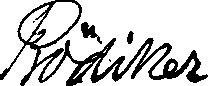 Rödiker